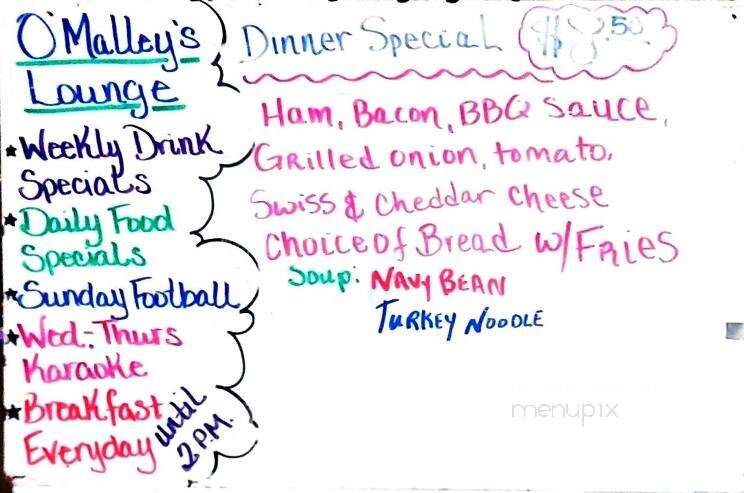 O'Malley's
Lounge
★Weekly Drink
Specials
★Daily Food
Specials
★Sunday Football
★Wed.-Thurs
Karaoke
★Breakfast
Everyday until
2 P.M.
Dinner Special
Ham, Bacon, BBQ Sauce,
Grilled onion, tomato,
Swiss & Cheddar Cheese
Choice of Bread w/ Fries
Soup: Navy Bean
Turkey Noodle
menupix